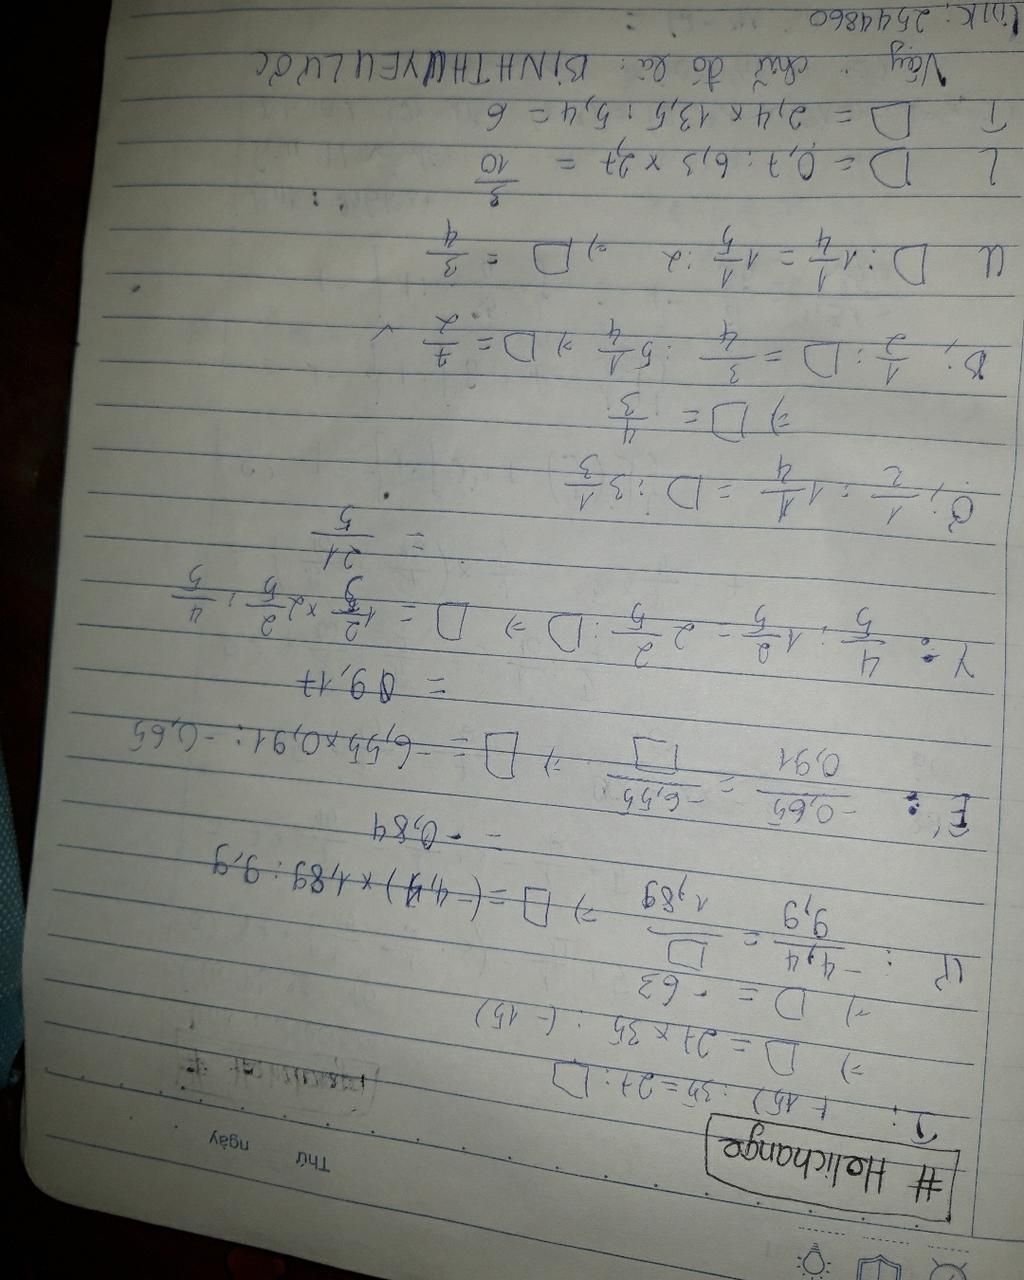 Thứ ngày
# Helichange
T: (-15) : 35 = 27 : □
=> □ = 27 x 35 : (-15)
=> □ = -63
Ư: -4,4/9,9 = □/1,89 => □ = (-4,4) x 1,89 : 9,9
= -0,84
Ế: -0,65/0,91 = -6,55/□ => □ = -6,55 x 0,91 : -0,65
= 9,17
Y: 4/5 : 1 2/5 = 2 2/5 : □ => □ = 1 2/5 x 2 2/5 : 4/5
= 21/5
1/2 : 1 1/4 = □ : 3 1/3
=> □ = 4/3
B: 1/2 : □ = 3/4 : 5 1/4 => □ = 7/2
U □ : 1 1/4 = 1 1/5 : 2 => □ = 3/4
L □ = 0,7 : 6,3 x 2,7 = 3/10
T □ = 2,4 x 13,5 : 5,4 = 6
Vậy : chữ đó là : BINHTHUYEULƯỢC
link: 2544860